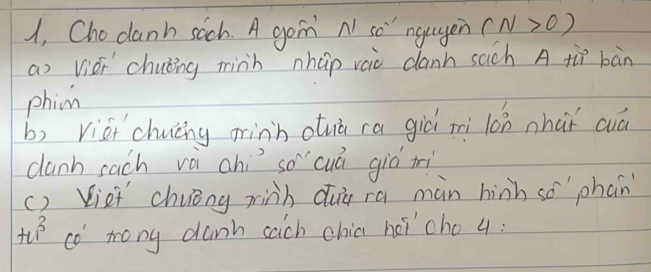 1, Cho danh sách A gồm N số nguyên (N > 0)
a) Viết chương trình nhập vào danh sách A từ bàn
phím
b) Viết chương trình đưa ra giá trị lớn nhất của
danh sách và chỉ số của giá trị
c) Viết chương trình đưa ra màn hình số phần
tử có trong danh sách chia hết cho 4: